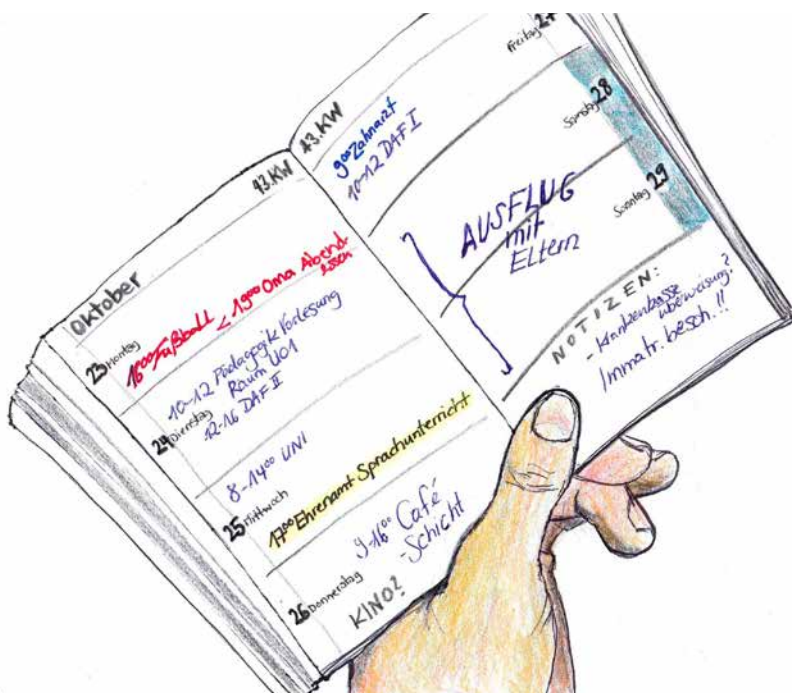 43.KW
Oktober
23 Montag
16⁰⁰ Fußball < 19⁰⁰ Oma Abend-
essen
24 Dienstag
10-12 Pädagogik Vorlesung
Raum U01
12-16 DAF II
25 Mittwoch
8-14⁰⁰ UNI
17⁰⁰ Ehrenamt Sprachunterricht
26 Donnerstag
9-16⁰⁰ Café
-Schicht
KINO?
43.KW
Freitag 27
9⁰⁰ Zahnarzt
10-12 DAF I
Samstag 28
Sonntag 29
AUSFLUG
mit
Eltern
NOTIZEN:
- Krankenkasse
überweisung?
Immatr. besch.!!